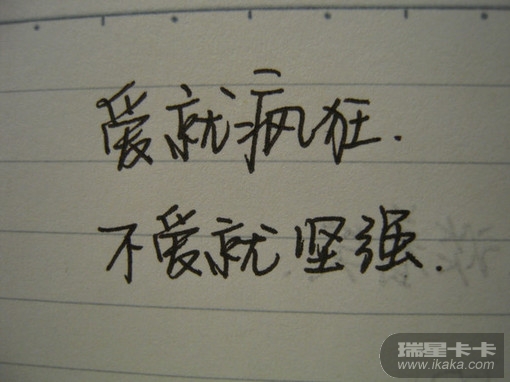 爱就疯狂.
不爱就坚强.
瑞星卡卡
www.ikaka.com